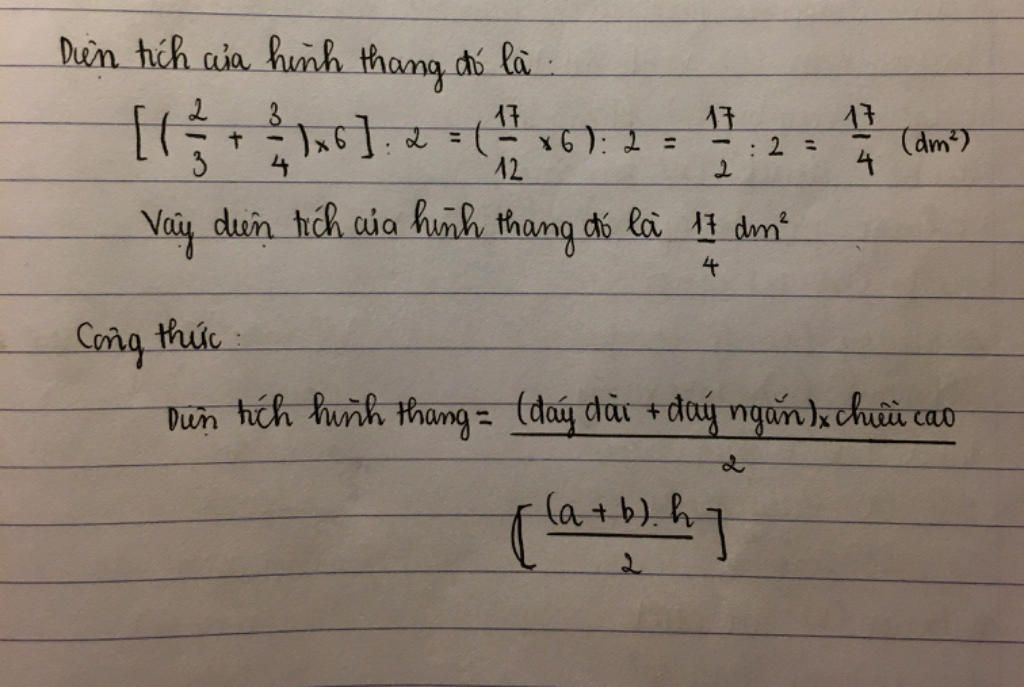 Diện tích của hình thang đó là :
[ ( 2/3 + 3/4 ) x 6 ] : 2 = ( 17/12 x 6 ) : 2 = 17/2 : 2 = 17/4 (dm²)
Vậy diện tích của hình thang đó là 17/4 dm²
Công thức :
Diện tích hình thang = (đáy dài + đáy ngắn) x chiều cao / 2
[ (a + b) . h / 2 ]